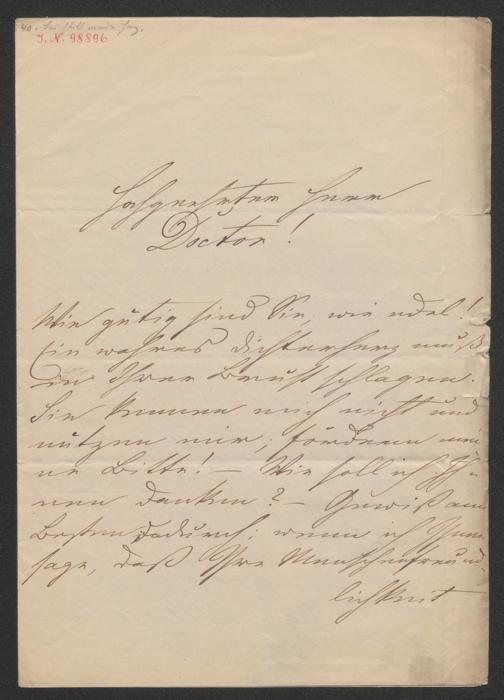 40.
I. N. 98896
Hochgeehrter Herr
Doctor!
Wie gütig sind Sie, wie edel!
Ein wahres Dichterherz muß
in Ihrer Brust schlagen.
Sie kennen mich nicht und
nützen mir; fördern mei-
ne Bitte! — Wie soll ich Ih-
nen danken? — Gewiß am
Besten dadurch; wenn ich Ihnen
sage, daß Ihre Menschenfreund-
lichkeit